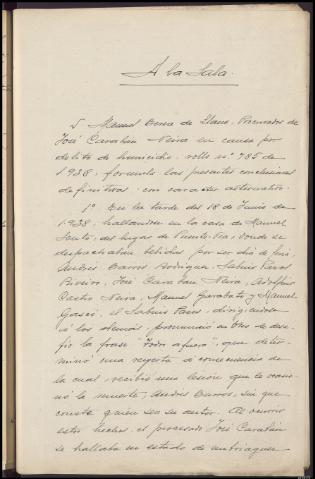 A la Sala.
D. Manuel de Llano, Procurador de
José Carabán Neira en causa por
delito de homicidio, rollo nº 785 de
1.938, formula las presentes conclusiones
definitivas con carácter alternativo.
1º En la tarde del 18 de Junio de
1.938, hallándose en la casa de Manuel
Souto, del lugar de donde se
despachaban bebidas por ser día de feria,
Andrés Barros Rodríguez, Sabino Pares
José Carabán Neira, Adolfo
Castro Neira, Manuel Garabato y Manuel
el Sabino Pares, dirigiéndose
a los demás, pronunció en tono de desa-
fío la frase "Todos afuera", que deter-
minó una reyerta a consecuencia de
la cual, recibió una lesión que le ocasio-
nó la muerte, Andrés Barros, sin que
conste quien sea su autor. Al ocurrir
estos hechos el procesado José Carabán
se hallaba en estado de embriaguez